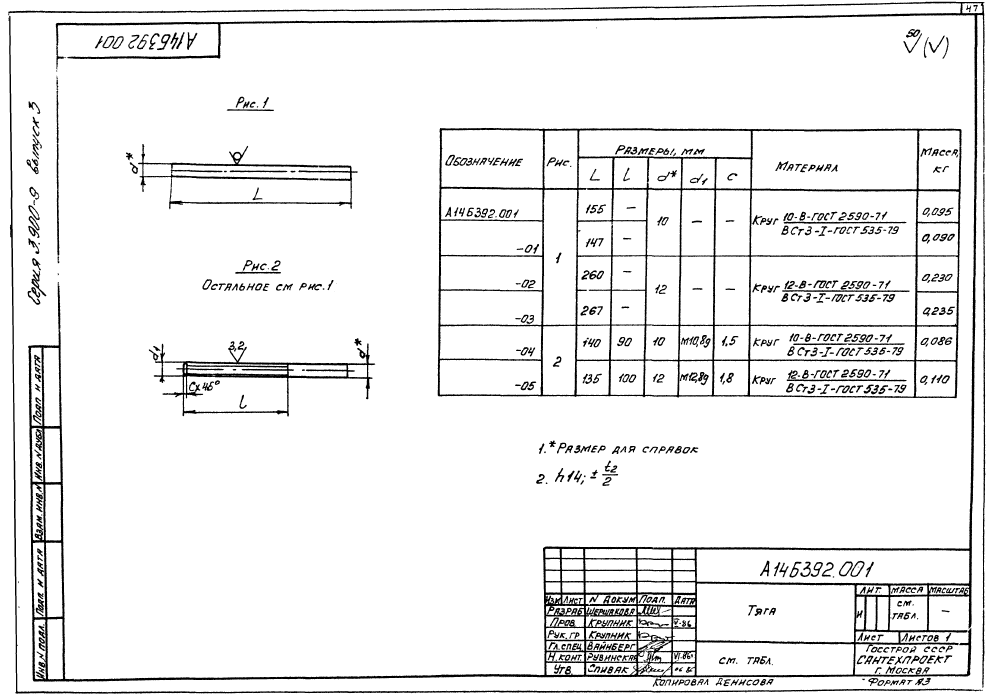 47
А14Б392.001
50
(√)
Серия 3.900-9 выпуск 3
Рис. 1
d*
L
Рис. 2
Остальное см рис. 1
d1
3,2
d*
C×45°
l
Обозначение Рис. Размеры, мм Материал Масса, кг
L l d* d1 c
А14Б392.001 1 155 – 10 – – Круг 10-В-ГОСТ 2590-71 / ВСт3-I-ГОСТ 535-79 0,095
-01 147 – 0,090
-02 260 – 12 – – Круг 12-В-ГОСТ 2590-71 / ВСт3-I-ГОСТ 535-79 0,230
-03 267 – 0,235
-04 2 140 90 10 М10,8g 1,5 Круг 10-В-ГОСТ 2590-71 / ВСт3-I-ГОСТ 535-79 0,086
-05 135 100 12 М12,8g 1,8 Круг 12-В-ГОСТ 2590-71 / ВСт3-I-ГОСТ 535-79 0,110
1. * Размер для справок
2. h14; ± t2/2
Инв. N подл. Подп. и дата Взам. инв. N Инв. N дубл. Подп. и дата
А14Б392.001
Изм Лист N докум Подп. Дата
Разраб Шершакова
Пров. Крупник V-86
Рук. гр Крупник
Гл. спец Вайнберг
Н. конт. Рувинская VI.86
Утв. Спивак
Тяга
см. табл.
Лит. Масса Масштаб
И см. табл. –
Лист Листов 1
Госстрой СССР
Сантехпроект
г. Москва
Копировал Денисова
Формат А3